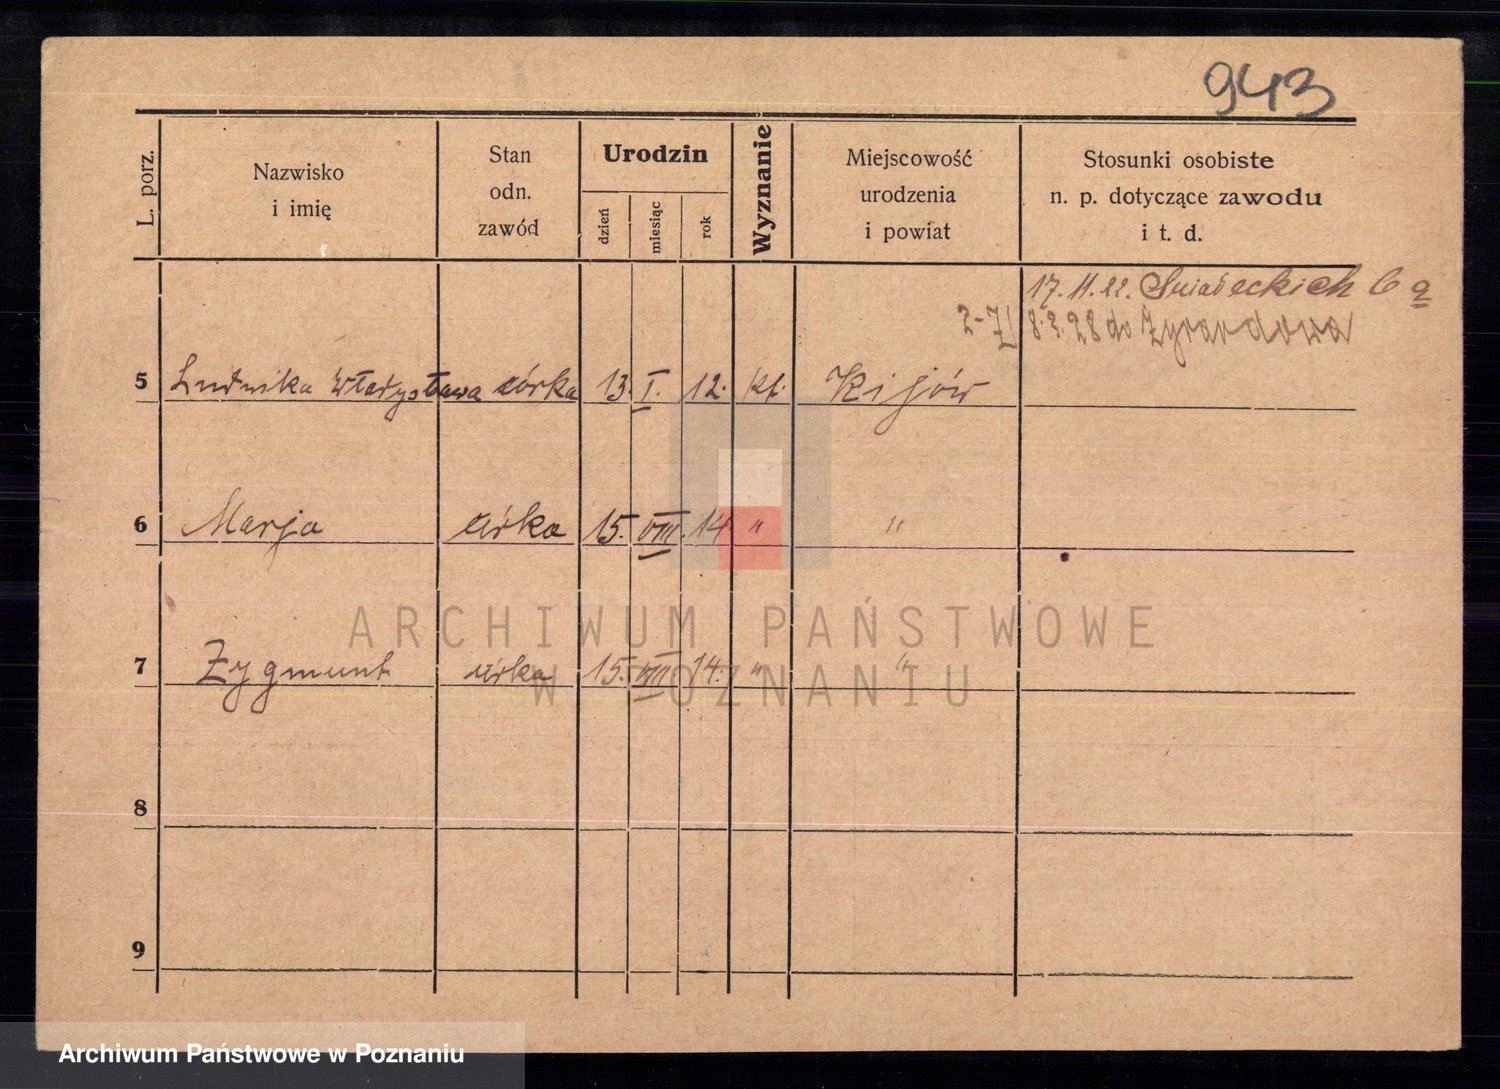 943
L. porz.
Nazwisko
i imię
Stan
odn.
zawód
Urodzin
dzień
miesiąc
rok
Wyznanie
Miejscowość
urodzenia
i powiat
Stosunki osobiste
n. p. dotyczące zawodu
i t. d.
17. 11. 22. Śniadeckich 6 a
2-7 8.2.28 do Żyrardowa
5 Ludwika Władysława córka 13. I. 12. kt. Kijów
6 Marja córka 15. VIII. 14. " "
ARCHIWUM PAŃSTWOWE
W POZNANIU
7 Zygmunt córka 15. VIII 14. " "
8
9
Archiwum Państwowe w Poznaniu